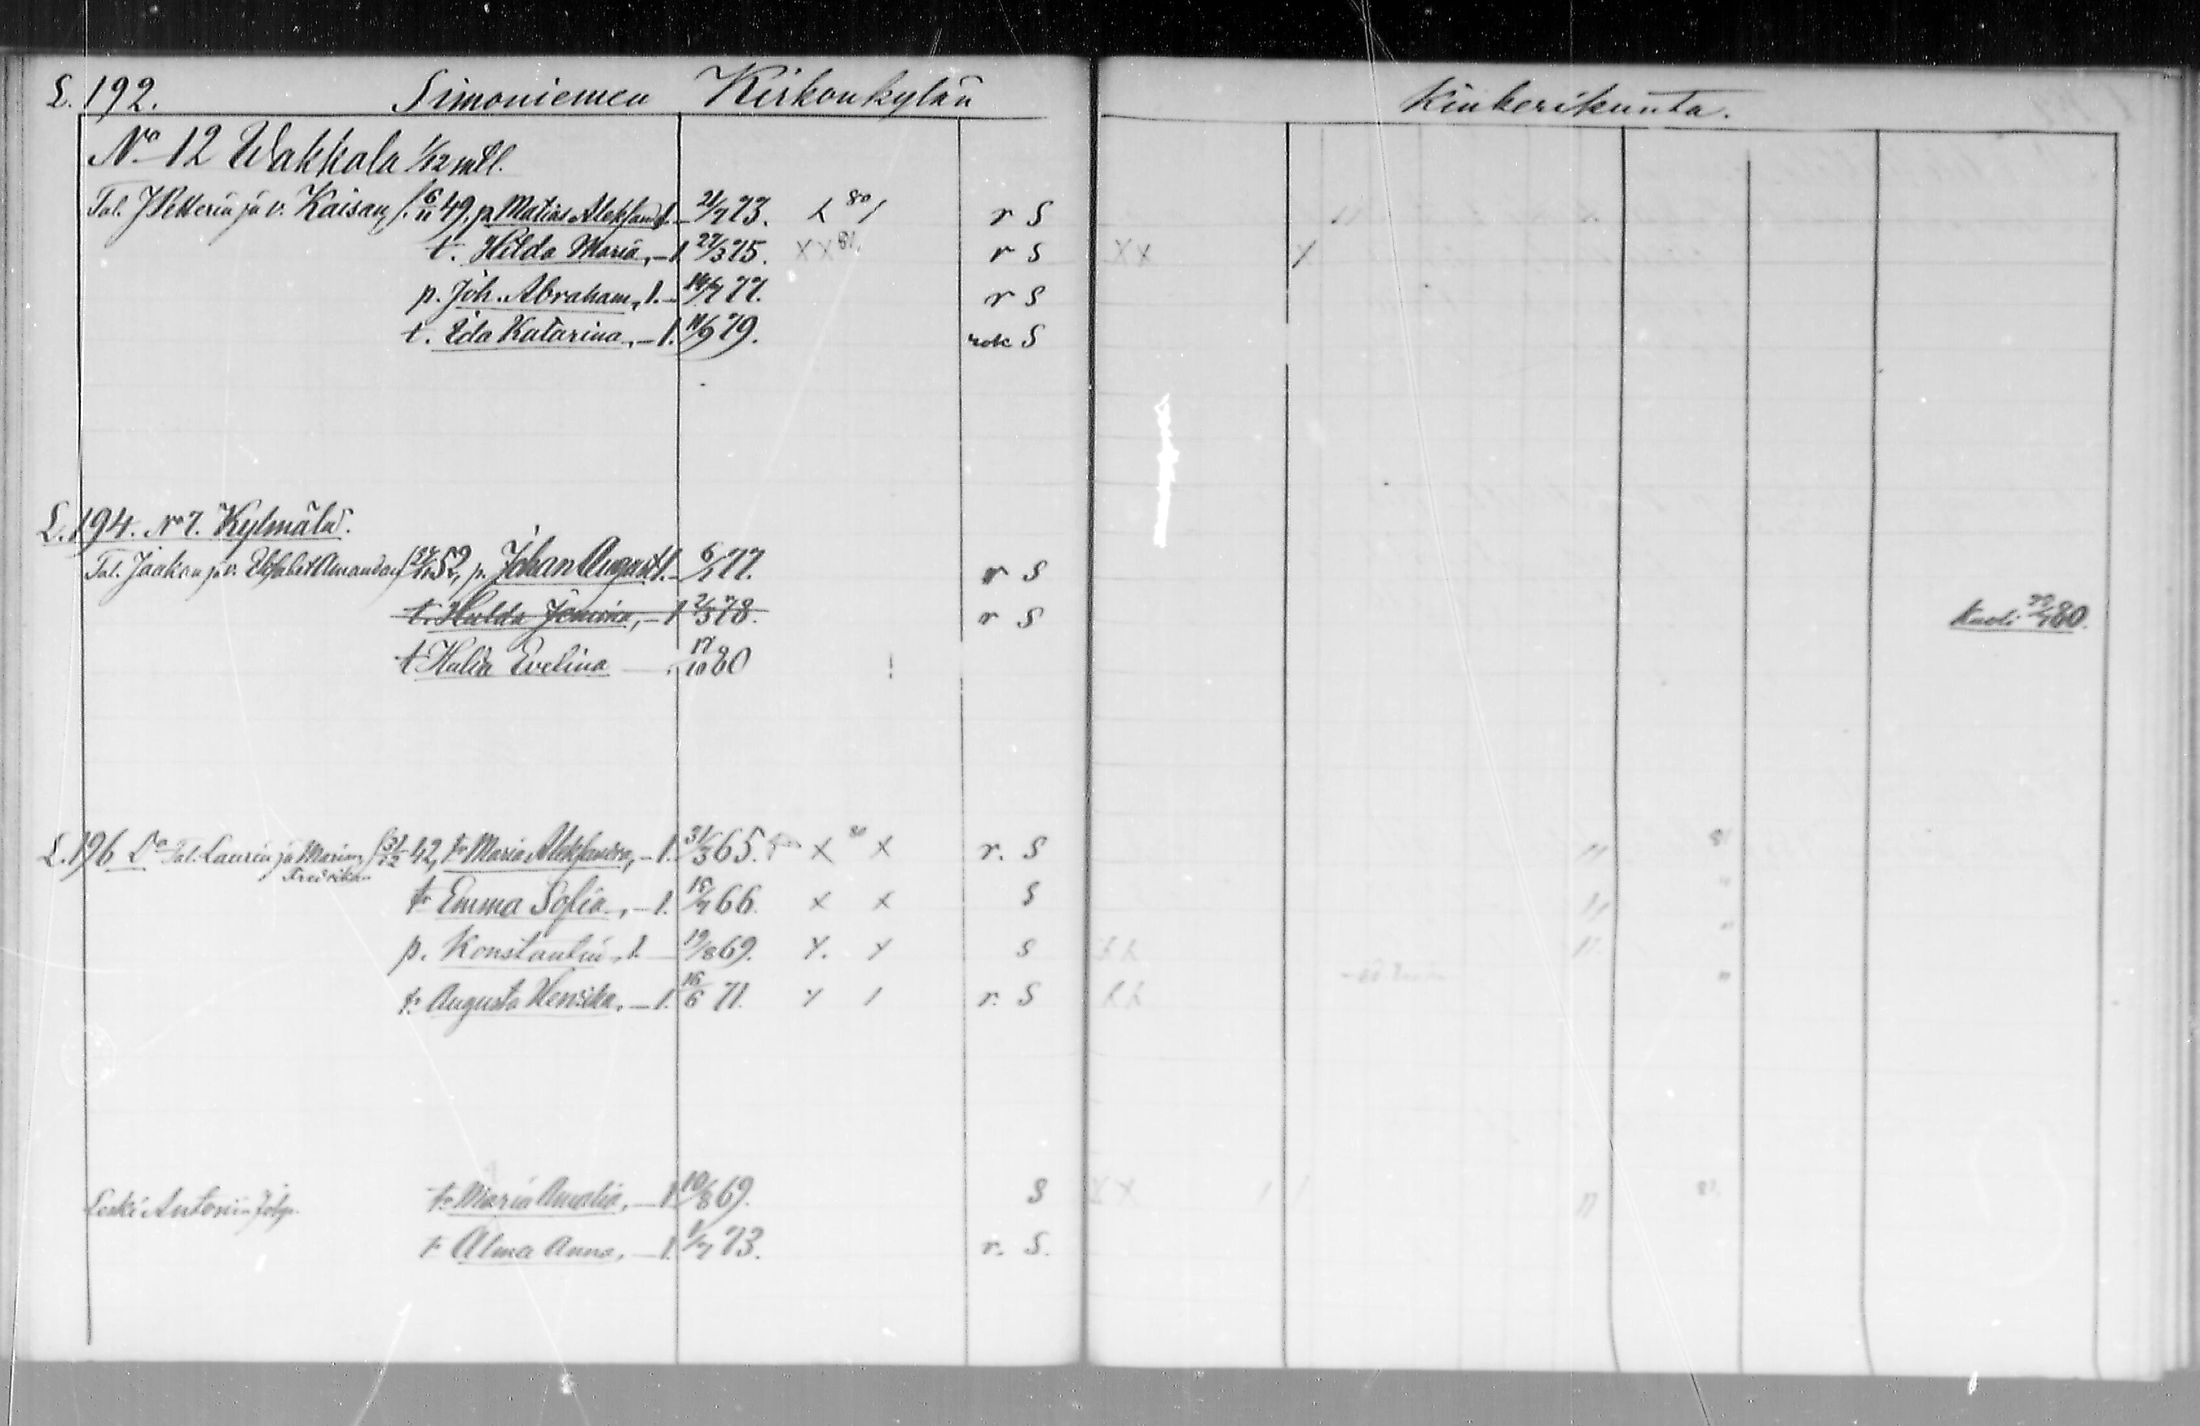 S. 192. Simoniemen Kirkonkylän Kinkerikunta.
No 12 Wakkala 1/12 mtl.
Tal. J Petterin ja v. Kaisan, s. 6/11 49, p. Matias Aleksand. s. 21/7 73. 80 r S
t. Hilda Maria, – s. 27/3 75. X X 81 r S X X
p. Joh. Abraham, s. – 14/7 77. r S
t. Ida Katarina, – s. 11/9 79. rok S
S. 194. No 7. Kylmälä.
Tal. Jaakon ja v. Amandan 52, p. Johan August s. 6/1 77. r S
t. Hulda Jemina, – s. 2/3 78. r S Kuoli 80.
t. Evelina 17/10 80
S. 196 Do Tal. Laurin ja Marian Fredrikan s. 31/12 42, tr Maria Aleksandra, – s. 31/3 65. X 80 X r. S 81
tr Emma Sofia, – s. 15/7 66. X X S "
p. Konstantin, s. 19/8 69. S "
tr Augusta Henrika, – s. 16/6 71. r. S "
Leski Antonin tr Maria Amalia, – s. 10/8 69. S X X 81
tr Alma Anna, – s. 1/7 73. r. S.